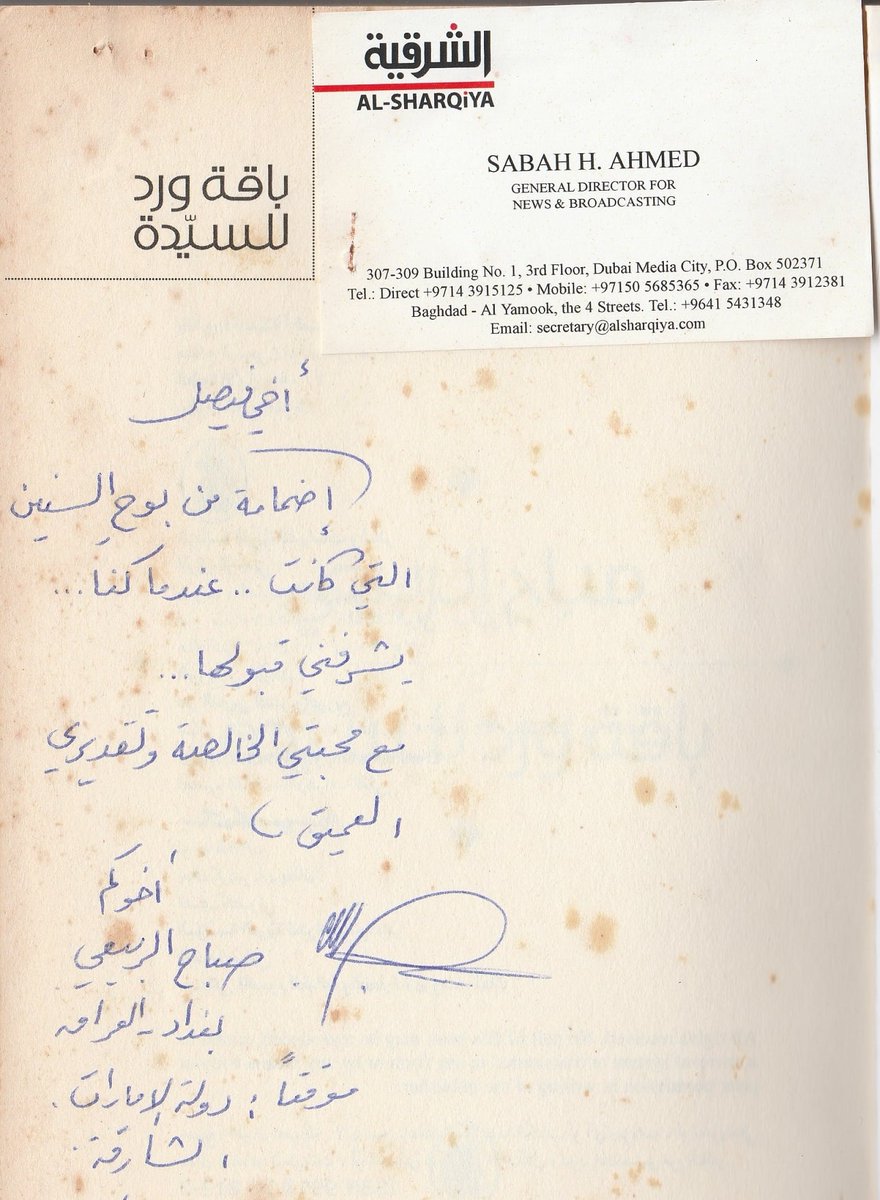 الشرقية
AL-SHARQiYA
SABAH H. AHMED
GENERAL DIRECTOR FOR
NEWS & BROADCASTING
307-309 Building No. 1, 3rd Floor, Dubai Media City, P.O. Box 502371
Tel.: Direct +9714 3915125 • Mobile: +97150 5685365 • Fax: +9714 3912381
Baghdad - Al Yamook, the 4 Streets. Tel.: +9641 5431348
Email: secretary@alsharqiya.com
باقة ورد
للسيّدة
أخي فيصل
إضمامة من بوح السنين
التي كانت .. عندما كنا...
يشرفني قبولها...
مع محبتي الخالصة وتقديري
العميق
أخوكم
صباح الربيعي
بغداد - العراق
موقتاً : دولة الإمارات.
الشارقة